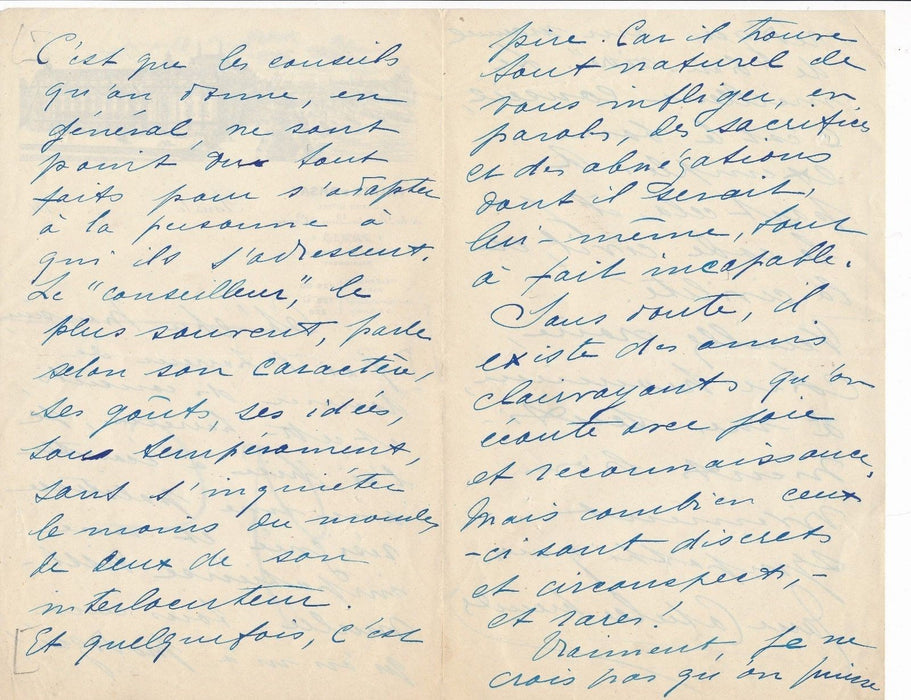 C'est que les conseils
qu'on donne, en
général, ne sont
point du tout
faits pour s'adapter
à la personne à
qui ils s'adressent.
Le "conseilleur", le
plus souvent, parle
selon son caractère,
ses goûts, ses idées,
son tempérament,
sans s'inquiéter
le moins du monde
de ceux de son
interlocuteur.
Et quelquefois, c'est
pire. Car il trouve
tout naturel de
vous infliger, en
paroles, des sacrifices
et des abnégations
dont il serait,
lui-même, tout
à fait incapable.
Sans doute, il
existe des amis
clairvoyants qu'on
écoute avec joie
et reconnaissance.
Mais combien ceux
-ci sont discrets
et circonspects, -
et rares!
Vraiment, je ne
crois pas qu'on puisse